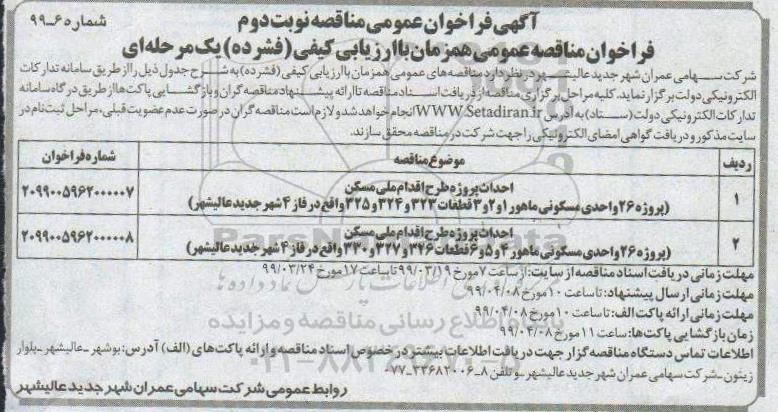 آگهی فراخوان عمومی مناقصه نوبت دوم
شماره ۶-۹۹
فراخوان مناقصه عمومی همزمان با ارزیابی کیفی (فشرده) یک مرحله‌ای
شرکت سهامی عمران شهر جدید عالیشهر در نظر دارد مناقصه‌های عمومی همزمان با ارزیابی کیفی (فشرده) به شرح جدول ذیل را از طریق سامانه تدارکات
الکترونیکی دولت برگزار نماید. کلیه مراحل برگزاری مناقصه از دریافت اسناد مناقصه تا ارائه پیشنهاد مناقصه گران و بازگشایی پاکت‌ها از طریق درگاه سامانه
تدارکات الکترونیکی دولت (ستاد) به آدرس WWW.Setadiran.ir انجام خواهد شد و لازم است مناقصه گران در صورت عدم عضویت قبلی، مراحل ثبت نام در
سایت مذکور و دریافت گواهی امضای الکترونیکی را جهت شرکت در مناقصه محقق سازند.
ردیف موضوع مناقصه شماره فراخوان
۱ احداث پروژه طرح اقدام ملی مسکن ۲۰۹۹۰۰۵۹۶۲۰۰۰۰۰۷
(پروژه ۲۶ واحدی مسکونی ماهور ۱ و ۲ و ۳ قطعات ۳۲۳ و ۳۲۴ و ۳۲۵ واقع در فاز ۴ شهر جدید عالیشهر)
۲ احداث پروژه طرح اقدام ملی مسکن ۲۰۹۹۰۰۵۹۶۲۰۰۰۰۰۸
(پروژه ۲۶ واحدی مسکونی ماهور ۴ و ۵ و ۶ قطعات ۳۲۶ و ۳۲۷ و ۳۳۰ واقع در فاز ۴ شهر جدید عالیشهر)
مهلت زمانی دریافت اسناد مناقصه از سایت: از ساعت ۷ مورخ ۹۹/۰۳/۱۹ تا ساعت ۱۷ مورخ ۹۹/۰۳/۲۴
مهلت زمانی ارسال پیشنهاد: تا ساعت ۱۰ مورخ ۹۹/۰۴/۰۸
مهلت زمانی ارائه پاکت الف: تا ساعت ۱۰ مورخ ۹۹/۰۴/۰۸
زمان بازگشایی پاکت‌ها: ساعت ۱۱ مورخ ۹۹/۰۴/۰۸
اطلاعات تماس دستگاه مناقصه گزار جهت دریافت اطلاعات بیشتر در خصوص اسناد مناقصه و ارائه پاکت‌های (الف) آدرس: بوشهر - عالیشهر - بلوار
زیتون - شرکت سهامی عمران شهر جدید عالیشهر - و تلفن ۸-۳۳۶۸۲۰۰۶-۰۷۷
روابط عمومی شرکت سهامی عمران شهر جدید عالیشهر